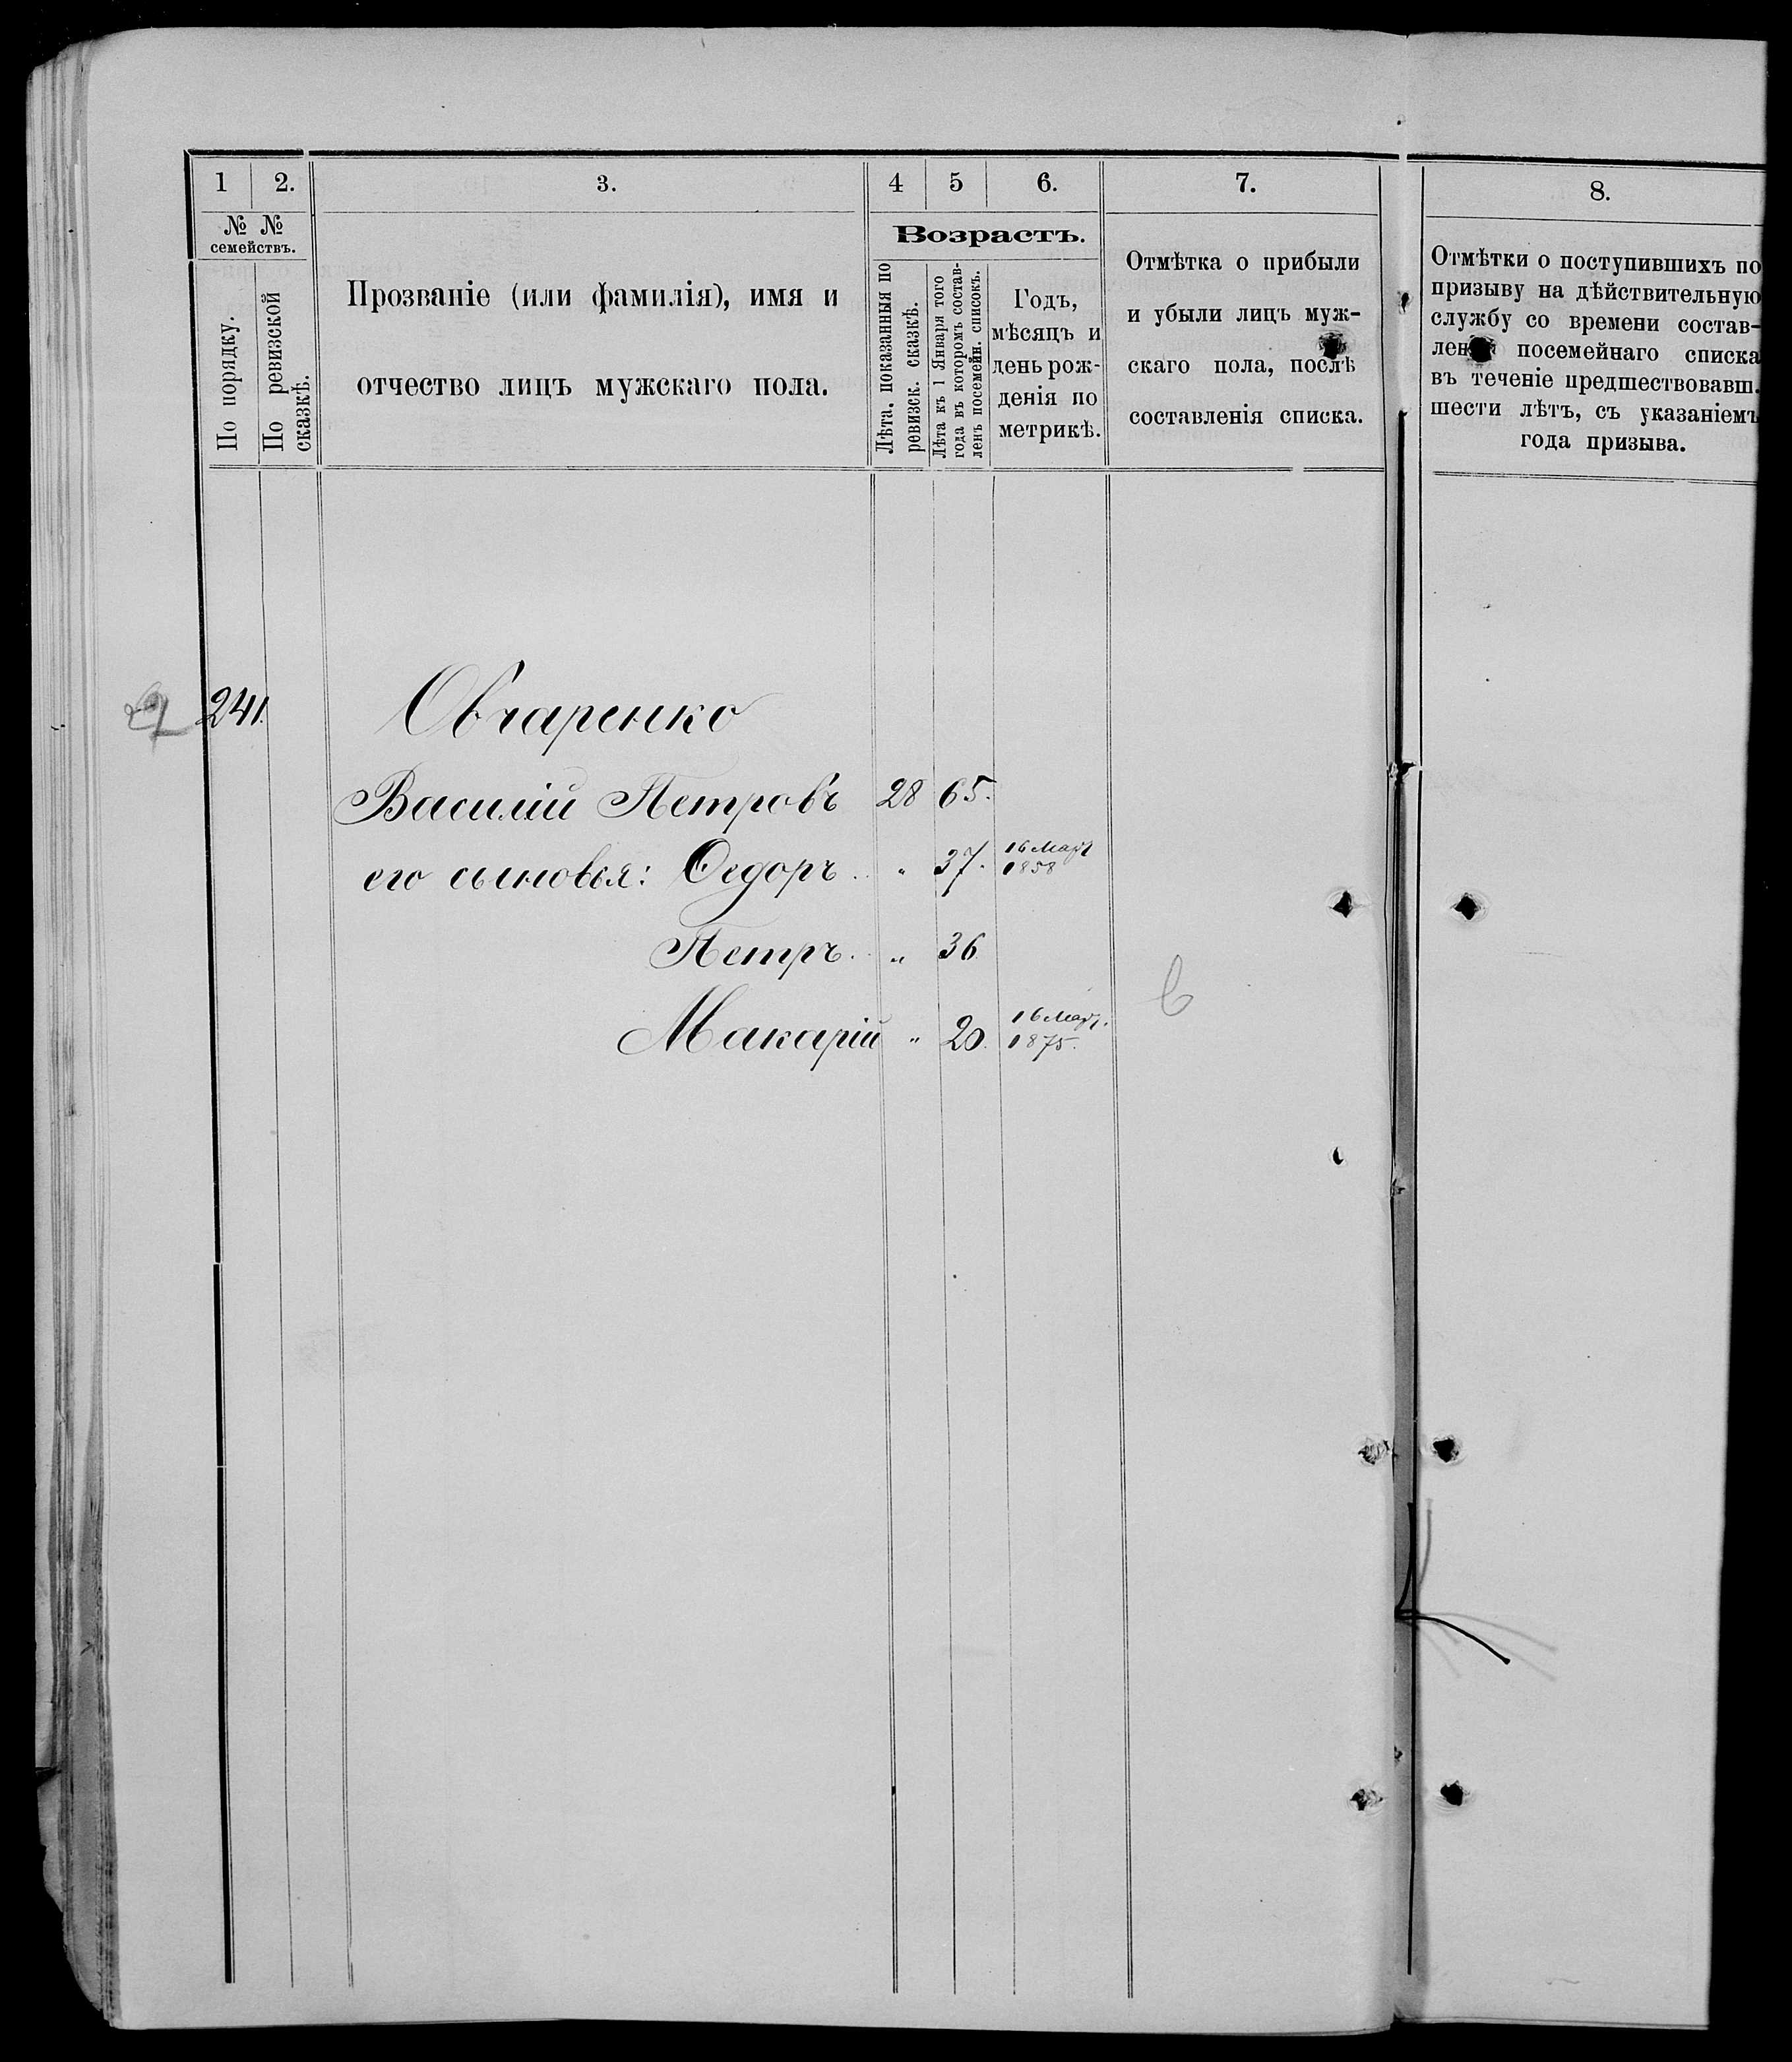 1 2. 3. 4 5 6. 7. 8.
№ № семействъ.
По порядку.
По ревизской сказкѣ.
Прозваніе (или фамилія), имя и
отчество лицъ мужскаго пола.
Возрастъ.
Лѣта, показанныя по
ревизск. сказкѣ.
Лѣта къ 1 Января того
года въ которомъ состав-
ленъ посемейн. списокъ.
Годъ,
мѣсяцъ и
день рож-
денія по
метрикѣ.
Отмѣтка о прибыли
и убыли лицъ муж-
скаго пола, послѣ
составленія списка.
Отмѣтки о поступившихъ по
призыву на дѣйствительную
службу со времени состав-
лен посемейнаго списка
въ теченіе предшествовавш.
шести лѣтъ, съ указаніемъ
года призыва.
241. Овчаренко
Василій Петровъ 28 65.
его сыновья: Ѳедоръ „ 37. 16 Март 1858
Петръ. „ 36
Макарій „ 20. 16 Март. 1875.